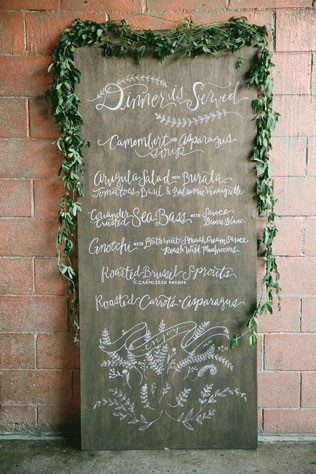 Dinner is Served
Camembert and Asparagus
Soup
Arugula Salad with Burata
Tomatoes, Basil & Balsamic Vinaigrette
Coriander Crusted Sea Bass with Sauce Beurre Blanc
Gnocchi with Butternut Squash Cream Sauce
Roasted Brussel Sprouts
& CARMELIZED ONIONS
Roasted Carrots & Asparagus
Enjoy